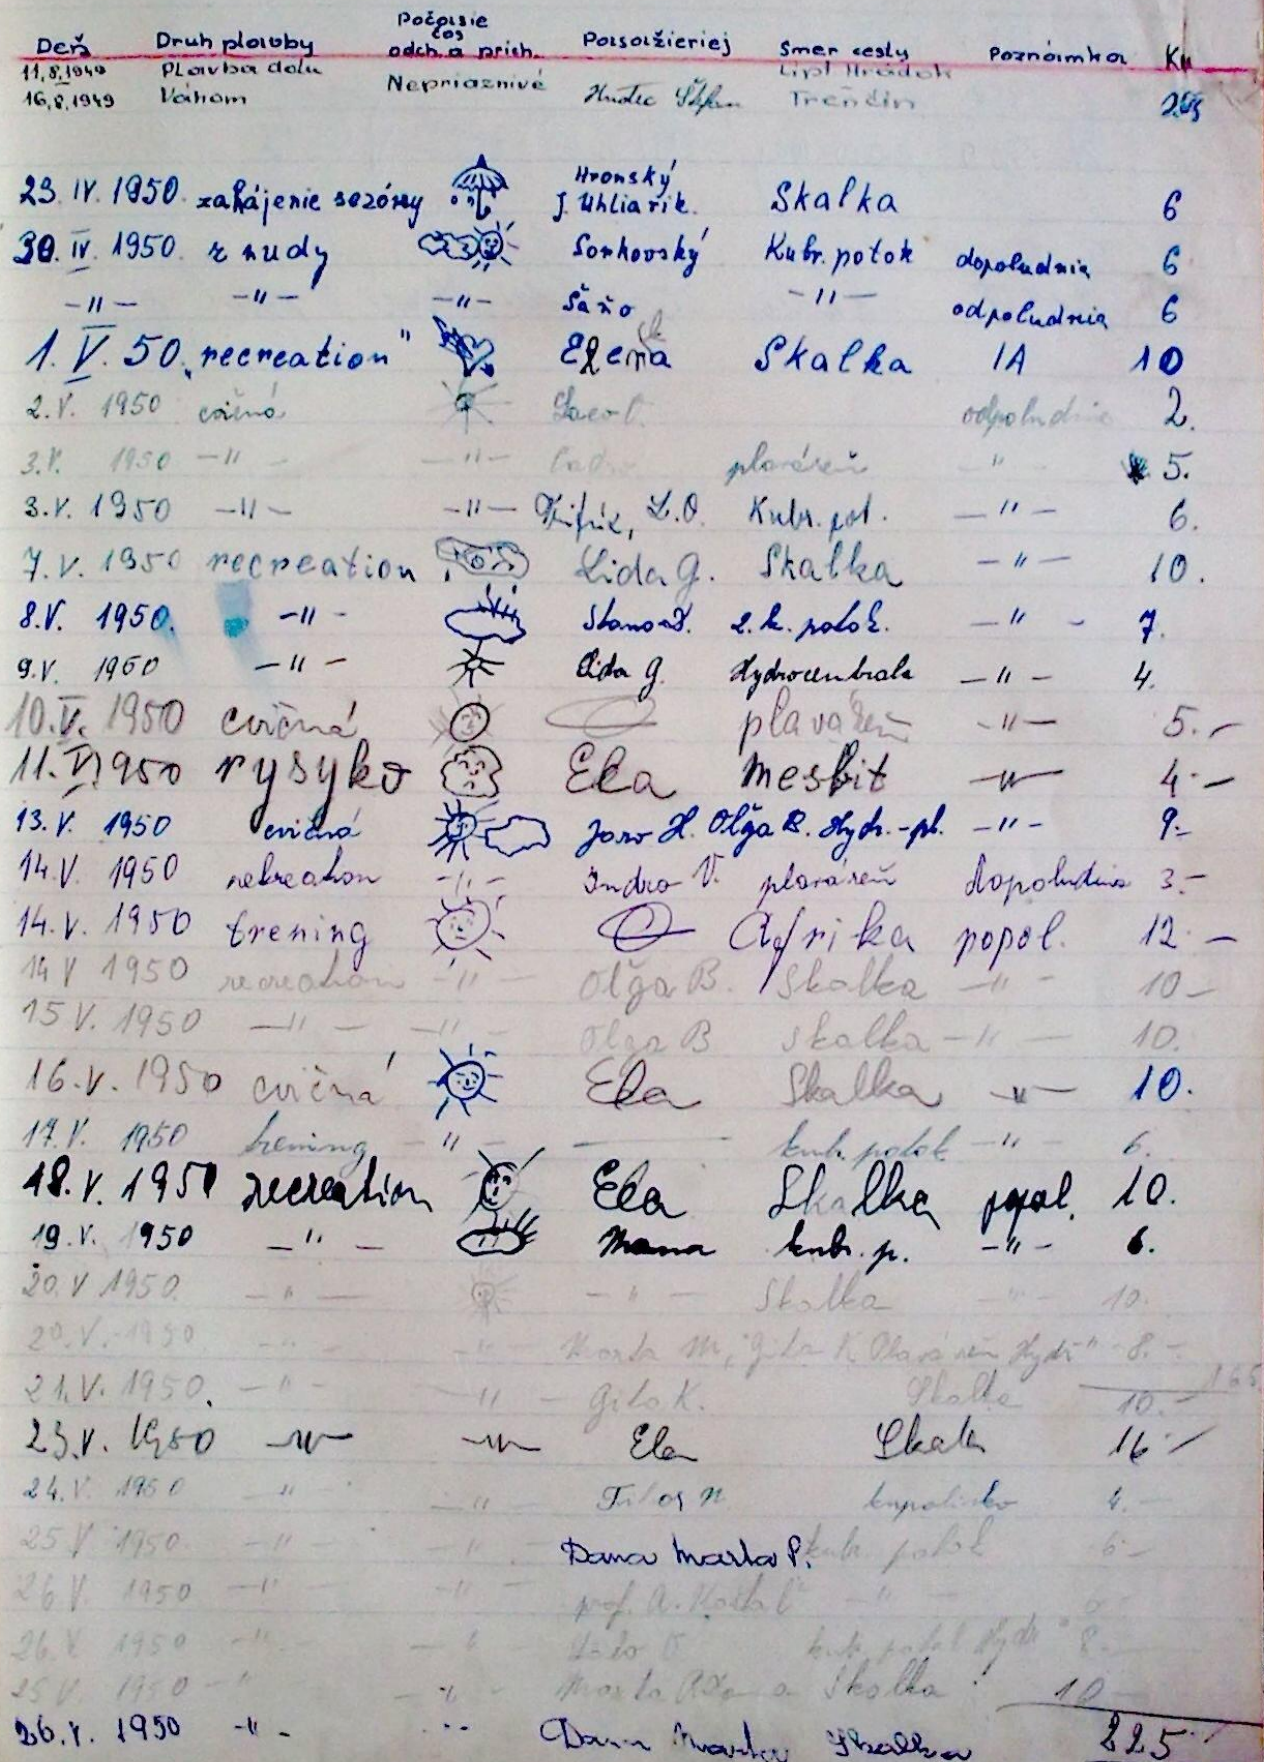 Počasie
čas
Deň Druh plavby odch. a prích. Pasažieriej Smer cesty Poznámka Km
11.8.1949 Plavba dolu Lipt Hrádok
16.8.1949 Váhom Nepriaznivé Trenčín
23. IV. 1950. zahájenie sezóny Hronský Skalka 6
J. Uhliarik.
30. IV. 1950 z nudy Kubr. potok dopoludnia 6
-"- -"- -"- -"- odpoludnia 6
1. V. 50. „recreation" Elena Skalka IA 10
2.V. 1950 cvičná odpoludnia 2.
3.V. 1950 -"- -"- plaváreň " 5.
3.V. 1950 -"- -"- Kubr. pot. -"- 6.
7.V. 1950 recreation Lida G. Skalka -"- 10.
8.V. 1950. -"- 2. k. potok. -"- 7.
9.V. 1950 -"- Lida G. Hydrocentrala -"- 4.
10.V. 1950 cvičná plaváreň -"- 5.-
11.V. 1950 rysyko Ela -"- 4.-
13.V. 1950 cvičná Jaro H. Oľga B. Hydr.-pl. -"- 9.-
14.V. 1950 rekreation -"- Indro V. plaváreň dopoludnia 3.-
14.V. 1950 trening Afrika popol. 12.-
14 V 1950 recreation -"- Oľga B. Skalka -"- 10.-
15 V. 1950 -"- -"- Olga B Skalka -"- 10.
16.V. 1950 cvičná Ela Skalka -"- 10.
17.V. 1950 trening -"- kub. potok -"- 6.
18.V. 1950 recreation Ela Skalka popol. 10.
19.V. 1950 -"- kubr. p. -"- 6.
20.V 1950. -"- -"- Skalka -"- 10.
20.V. 1950 -"- -"- Marta M, Gita K Plaváreň Hydr " 8.-
165
21.V. 1950. -"- -"- Gita K. Skalka 10.-
23.V. 1950 -"- -"- Ela 16.-
24.V. 1950 -"- -"- kupalisko 4.-
25 V 1950. -"- -"- Dana Marta P. kub. potok 6.-
26 V. 1950 -"- -"- prof. A. -"-
26.V. 1950 -"- -"- kub. potok Hydr " 8.-
25 V. 1950 -"- -"- Marta Skalka 10
26.V. 1950 -"- -"- Dana Marta Skalka 225